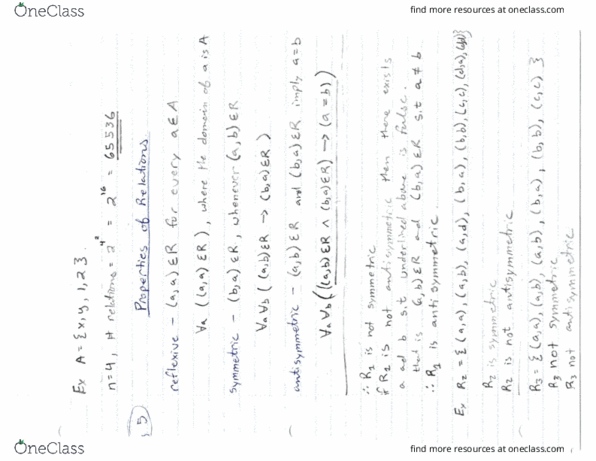 OneClass
find more resources at oneclass.com
Ex A = {x,y,1,2,3
n=4, # relations = 2^4^2 = 2^16 = 65536
5 Properties of Relations
reflexive - (a,a) ∈ R for every a ∈ A
∀a ((a,a) ∈ R), where the domain of a is A
symmetric - (b,a) ∈ R, whenever (a,b) ∈ R
∀a∀b ((a,b) ∈ R → (b,a) ∈ R)
antisymmetric - (a,b) ∈ R and (b,a) ∈ R imply a=b
∀a∀b ((a,b) ∈ R ∧ (b,a) ∈ R) → (a=b))
∴ R1 is not symmetric
if R2 is not antisymmetric then there exists
a ad b s.t underlined above is false.
that is (a,b) ∈ R and (b,a) ∈ R s.t a ≠ b
∴ R1 is anti symmetric
Ex R2 = {(a,a), (a,b), (a,d), (b,a), (b,b), (c,c), (d,a),
R2 is symmetric
R2 is not antisymmetric
R3 = {(a,a), (a,b), (a,b), (b,a), (b,b), (c,c) }
R3 not symmetric
R3 not antisymmetric
OneClass
find more resources at oneclass.com